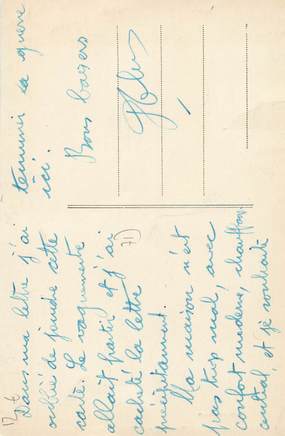 Dans ma lettre j'ai
oublié de joindre cette
carte. Le vaguemestre
allait partir et j'ai
cacheté la lettre
précipitamment.
Ma maison n'est
pas trop mal, avec
confort moderne, chauffage
central, et je souhaite
terminer la guerre
ici.
Bons baisers